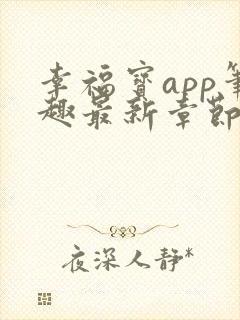 幸福宝app笔
趣最新章节
夜深人静*